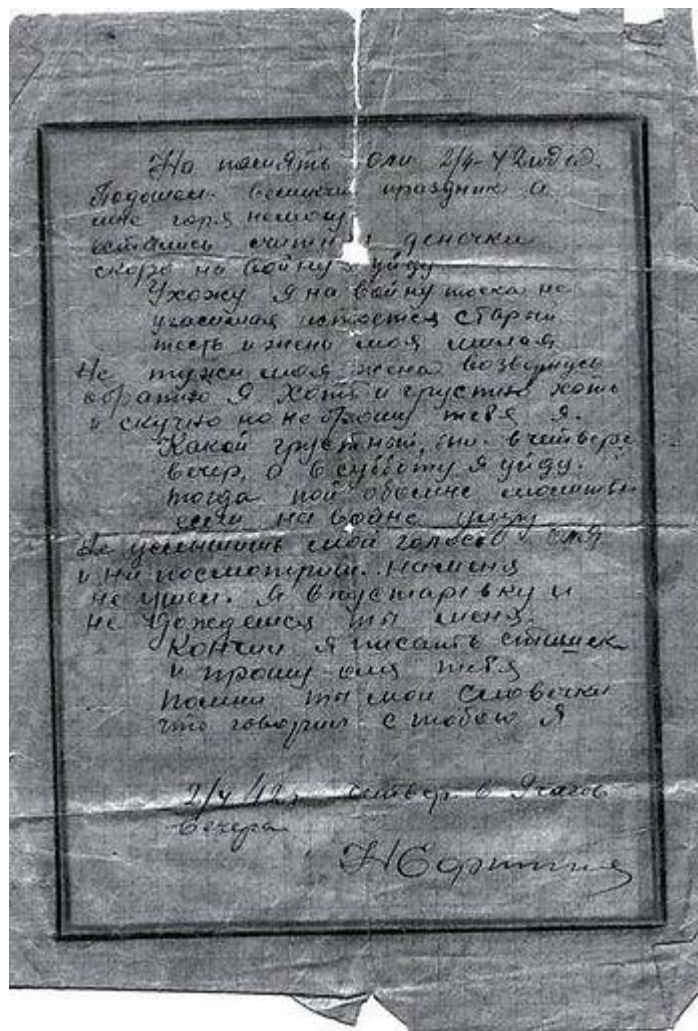 На память Оли 2/4-42года.
Подошел великий праздник а
мне горя
остались считаны деночки
скоро на войну уйду
Ухожу я на войну тоска не
угасимая остается старый
тесть и жена моя милая
Не тужи моя жена возвернусь
обратно я хоть и грустно хоть
и скучно но не брошу тебя я.
Какой грустный был в четверг
вечер, а в субботу я уйду.
тогда пой обо мне молитвы
если на войне умру
Не услышишь мой голосок Оля
и не посмотришь на меня
не ушел я в
не дождешься ты меня.
Кончил я писать стишек
и прошу Оля тебя
помни ты мои словечки
что говорил с тобою я
2/4/42г четверг в 9 часов
вечера